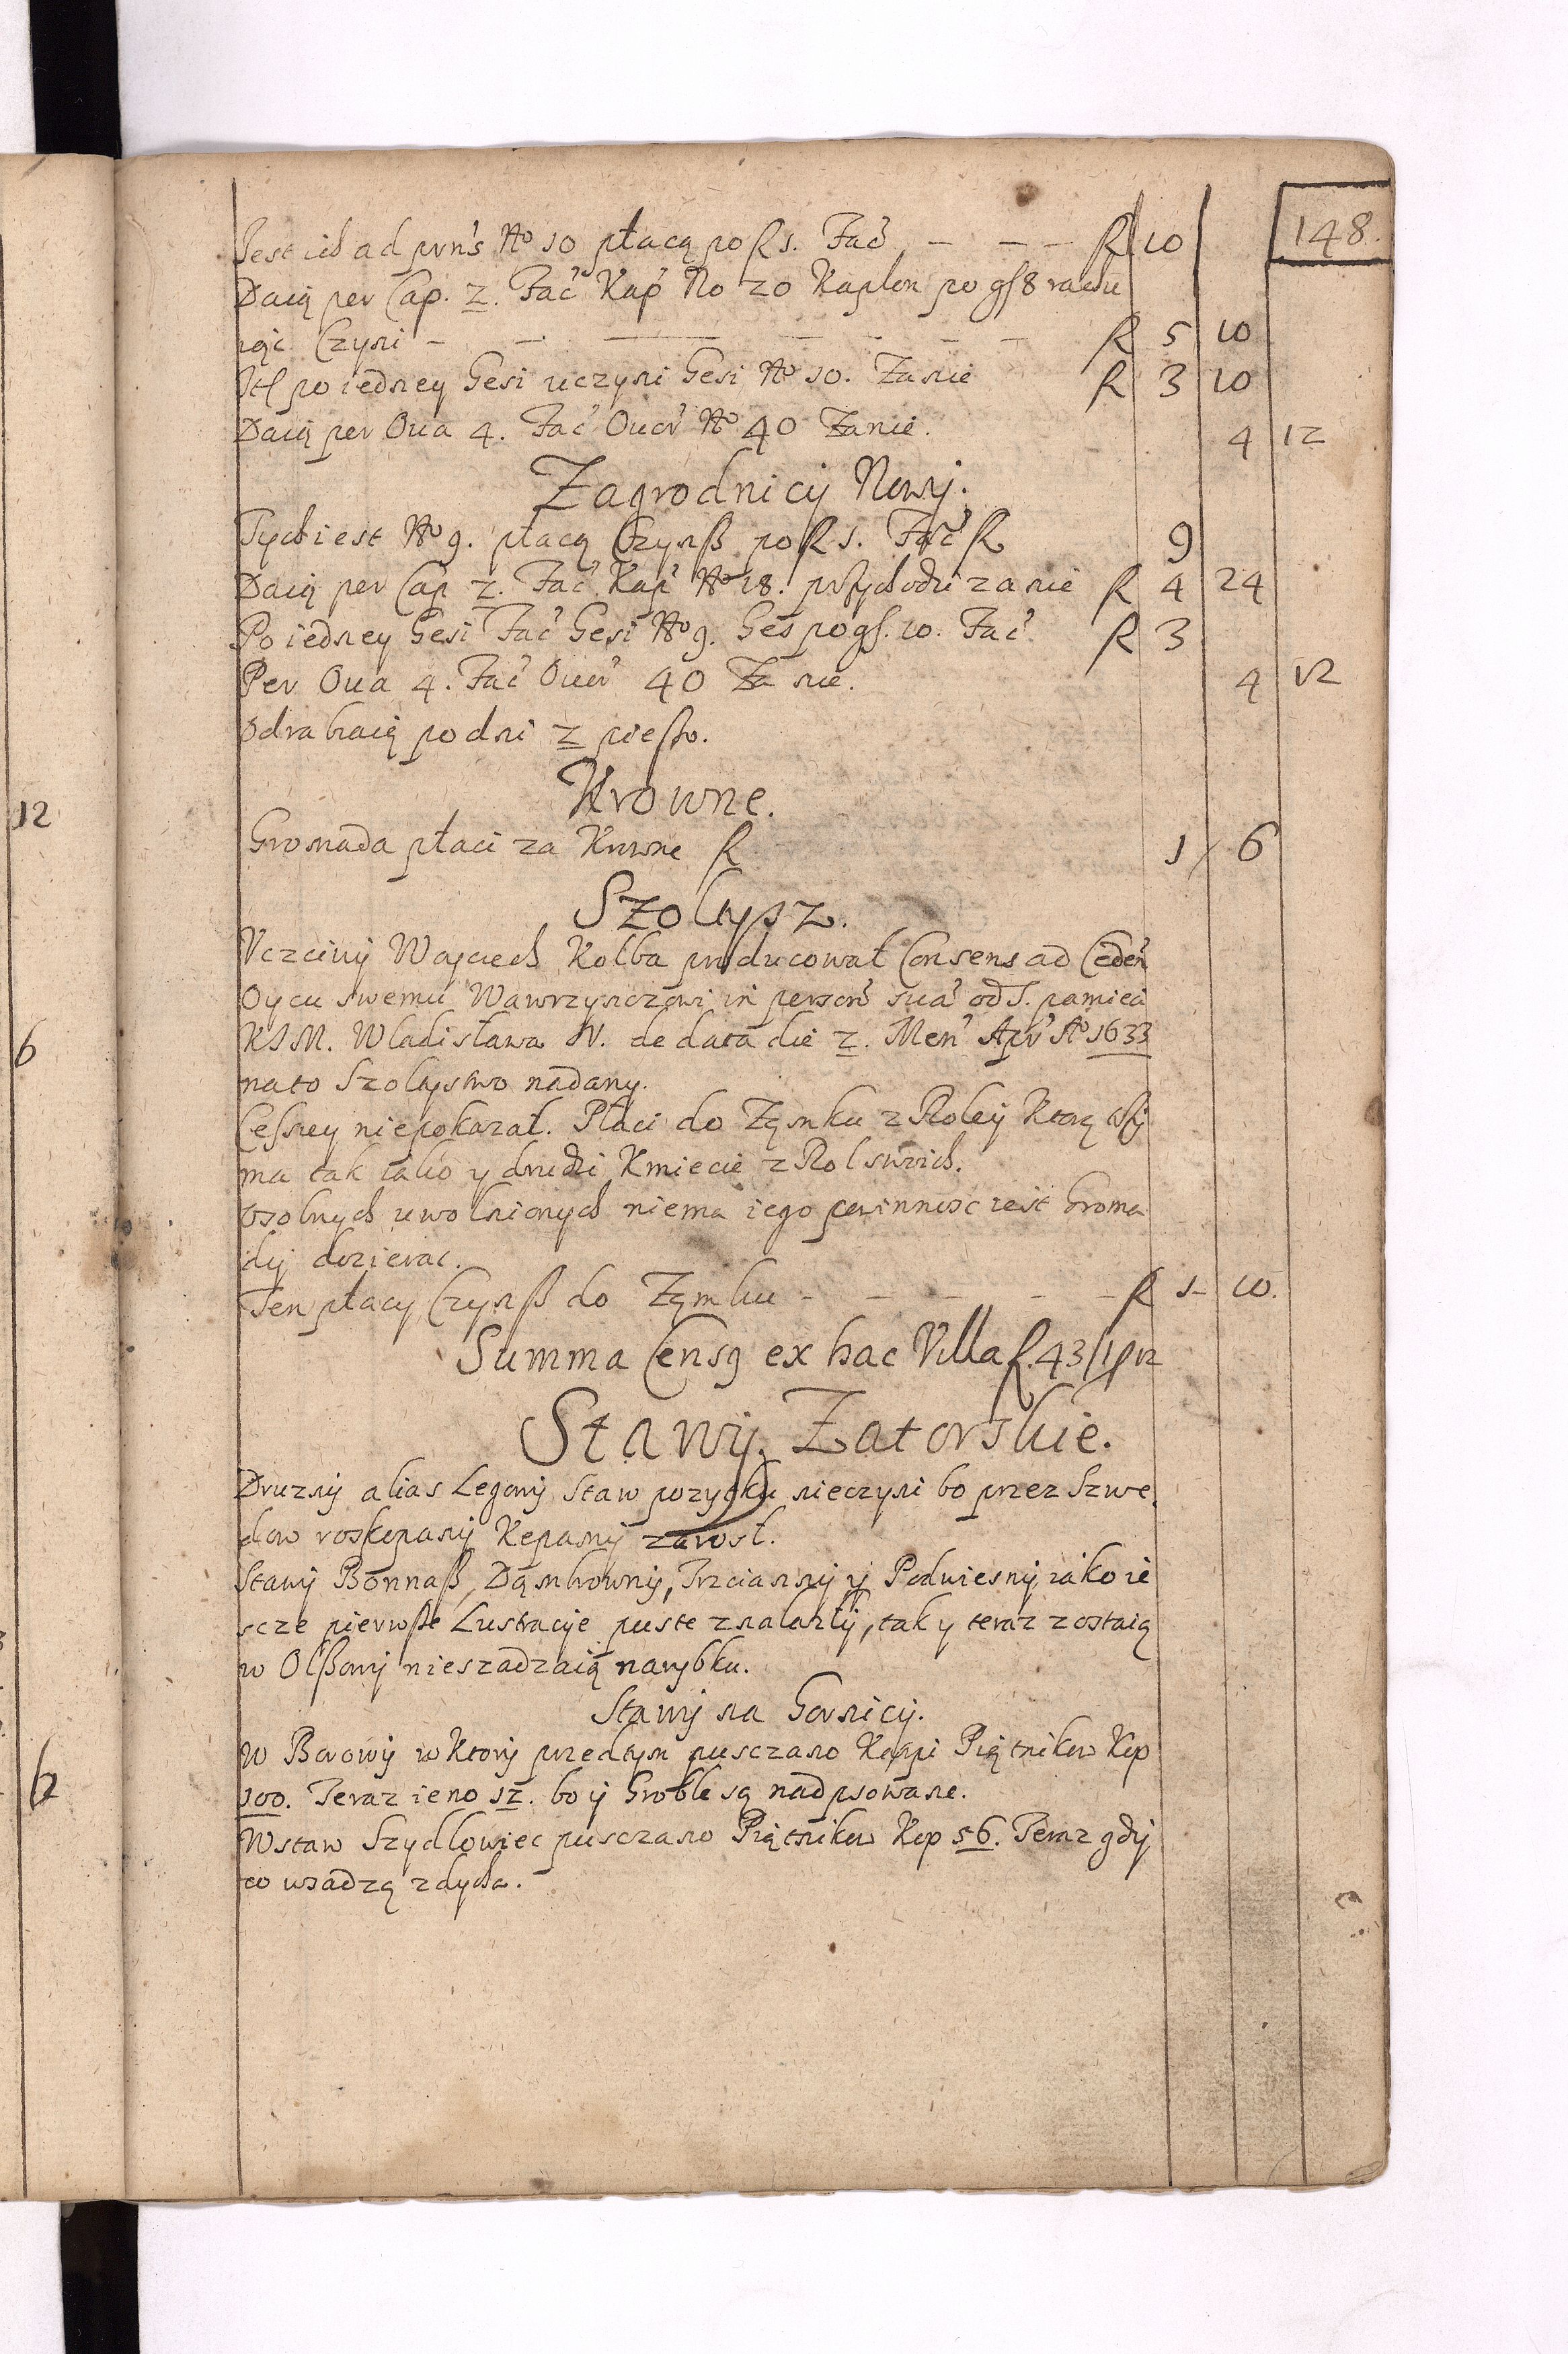 148.
Jest ich ad prns No 10 płacą po fl 1. Fac̃ — — — fl 10
Daią per Cap. 2. Fac̃ Kap̃ No 20 Kapłon po gſ 8 rachu
iąc Czyni — — — — — fl 5 10
Itł po iedney Gesi uczyni Gesi No 10. Zanie fl 3 10
Daią per Oua 4. Fac̃ Ouor̃ No 40 Zanie. 4 12
Zagrodnicy Nowy.
Tych iest No 9. płacą Czynß po fl 1. Fac̃ fl 9
Daią per Cap 2. Fac̃ Kap̃ No 18. przychodzi zanie fl 4 24
Po iedney Gesi Fac̃ Gesi No 9. Ges po gſ. 10. Fac̃ fl 3
Per Oua 4. Fac̃ Ouor̃ 40 Za nie. 4 12
Odrabiaią po dni 2 pieſzo.
Krowne.
Gromada płaci za Krowne fl 1 / 6
Szołtysz.
Vczciwy Woyciech Kołba producował Consens ad Ceden̄
Oycu swemu Wawrzynczowi in person̄ sua' od S. pamieci
KIM. Wladisława IV. de data die 2. Men̄ Apr̃ Ao 1633
na to Szołtystwo nadany.
Ceſsiey niepokazał. Płaci do Zamku z Roley Ktorą
ma tak iako y drudzi Kmiecie z Rol swoich.
Osobnych uwolnionych niema iego powinnosc iest Groma
dy dozierac.
Ten płacy Czynß do Zamku — — — — fl 1 — 10.
Summa Censg ex hac Villa fl. 43/1/12
Stawy Zatorskie.
Druzny alias Legowy Staw pozytku nieczyni bo przez Szwe
dow roskopany Kepamy zarosł.
Stawy Bonnaß, Dąmbrowny, Trzcianny y Podwiesny iako ie
scze pierwße Lustracye puste znalazły, tak y teraz zostaią
w Olßowy nieszadzaią narybku.
Stawy na Gornicy.
W Borowy w Ktory przedtym pusczano Karpi Piątnikow Kop
100. Teraz ieno 12. bo y Groble są nadpsowane.
W staw Szydlowiec pusczano Piątnikow Kop 56. Teraz gdy
co wsadzą zdycha.
12
6
6